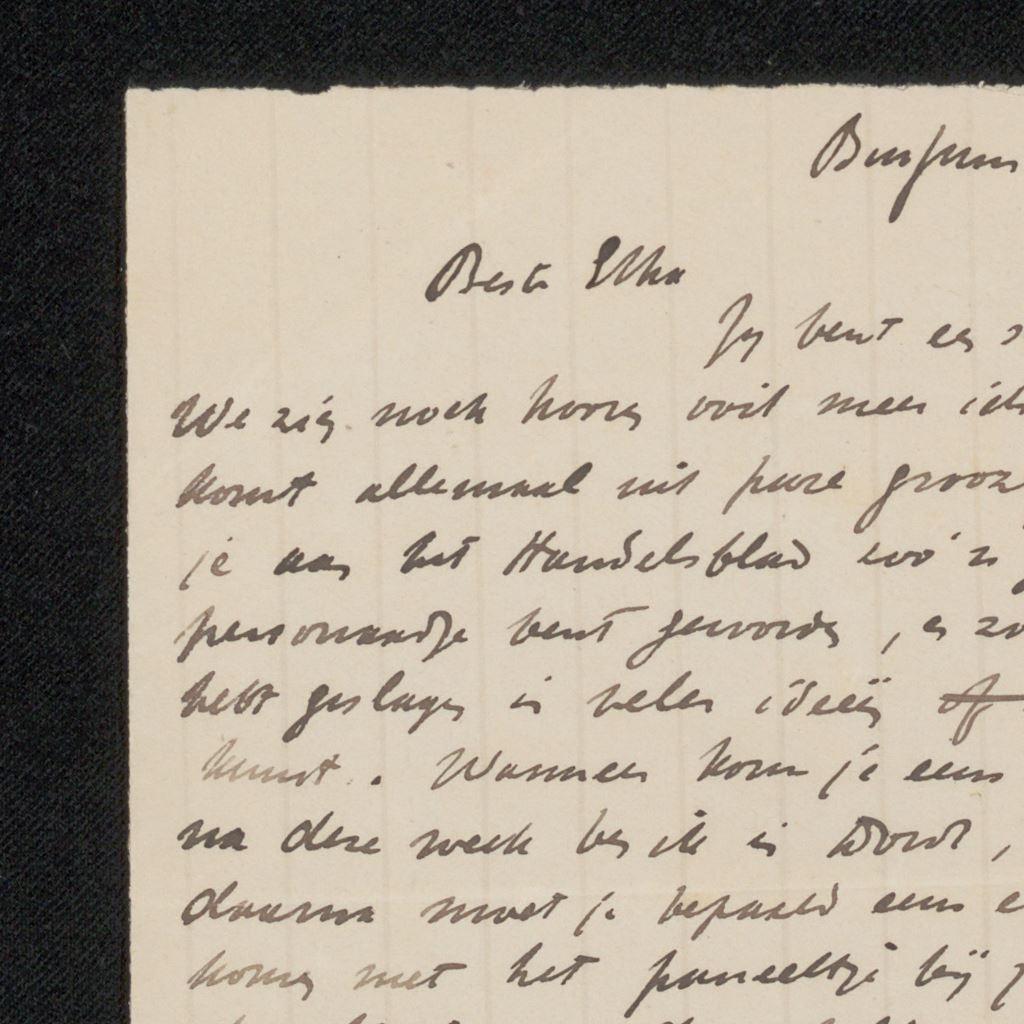 Bussum
Beste Elha
Jy bent een
We zien noch hooren ooit meer iets
komt allemaal uit pure groot
je aan het Handelsblad zoo'n
personaadje bent geworden, en zo
hebt geslagen in veler ideeën of
kunst. Wanneer kom je eens
na deze week ben ik in Dordt,
daarna moet je bepaald eens e
komen met het paneeltje bij